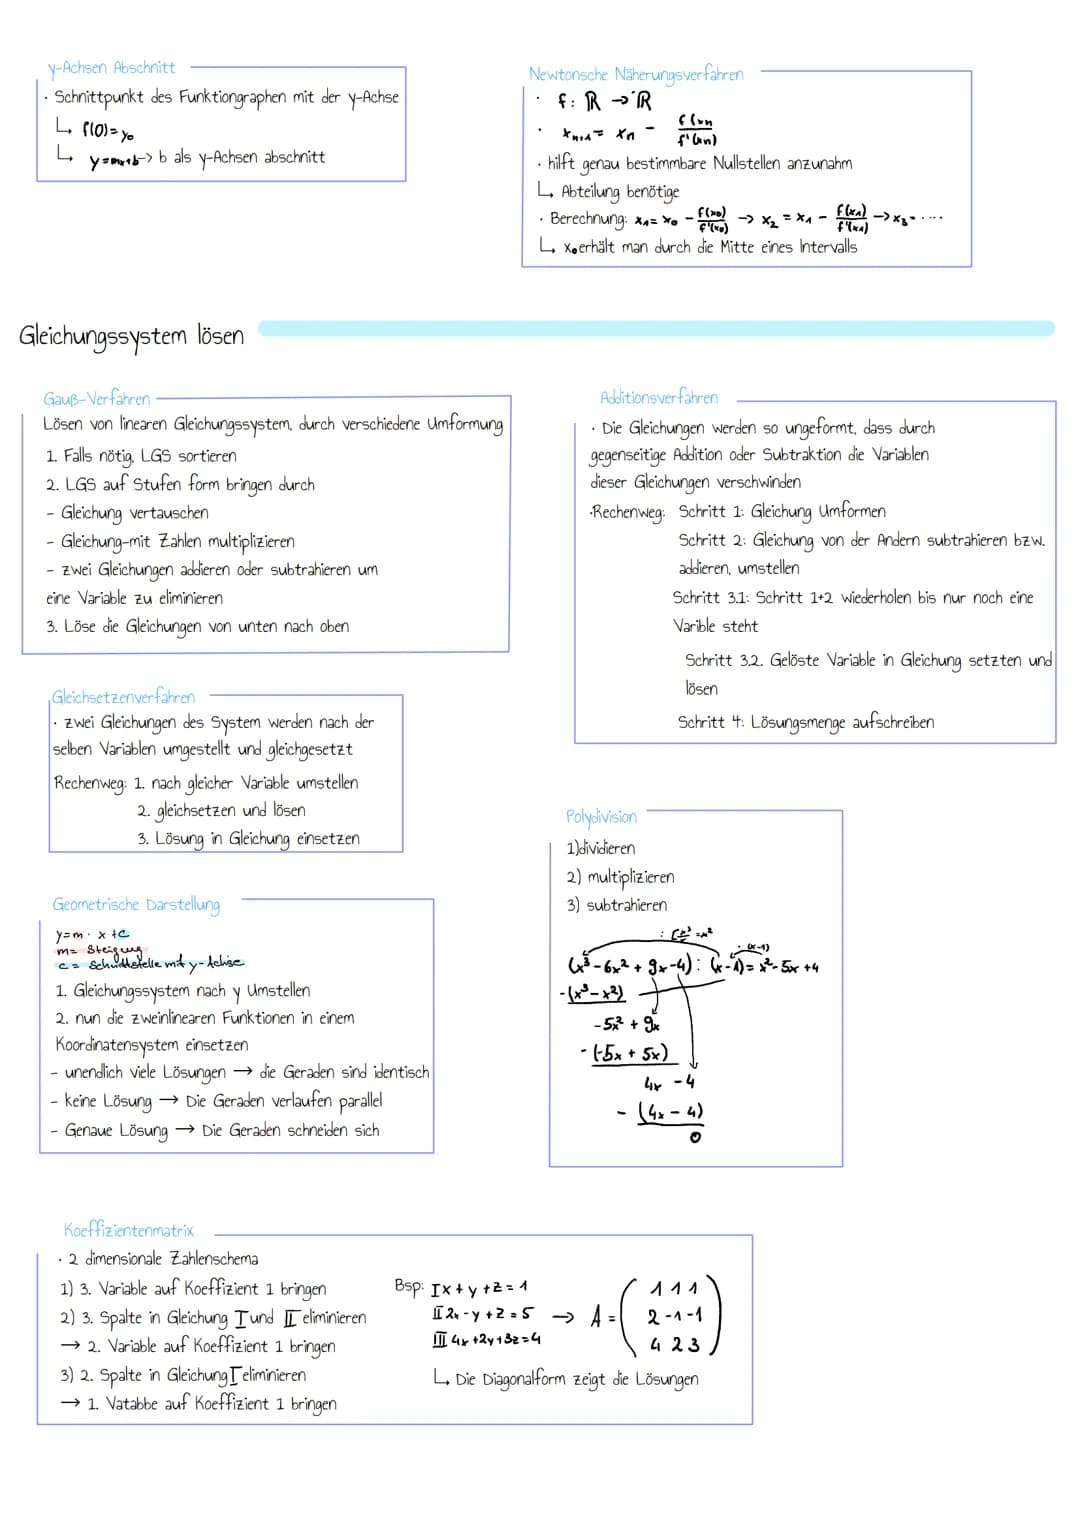 y-Achsen Abschnitt
· Schnittpunkt des Funktiongraphen mit der y-Achse
↳ f(0)=y₀
↳ y=mx+b-> b als y-Achsen abschnitt
Newtonsche Näherungsverfahren
· f: ℝ → ℝ
· xₙ₊₁ = xₙ - f(xn / f'(xn)
· hilft genau bestimmbare Nullstellen anzunahm
↳ Abteilung benötige
· Berechnung: x₁ = x₀ - f(x₀)/f'(x₀) → x₂ = x₁ - f(x₁)/f'(x₁) → x₃ = ....
↳ x₀ erhält man durch die Mitte eines Intervalls
Gleichungssystem lösen
Gauß-Verfahren
Lösen von linearen Gleichungssystem, durch verschiedene Umformung
1. Falls nötig, LGS sortieren
2. LGS auf Stufen form bringen durch
- Gleichung vertauschen
- Gleichung-mit Zahlen multiplizieren
- zwei Gleichungen addieren oder subtrahieren um
eine Variable zu eliminieren
3. Löse die Gleichungen von unten nach oben
Additionsverfahren
· Die Gleichungen werden so ungeformt, dass durch
gegenseitige Addition oder Subtraktion die Variablen
dieser Gleichungen verschwinden
·Rechenweg: Schritt 1: Gleichung Umformen
Schritt 2: Gleichung von der Andern subtrahieren bzw.
addieren, umstellen
Schritt 3.1: Schritt 1+2 wiederholen bis nur noch eine
Varible steht
Schritt 3.2. Gelöste Variable in Gleichung setzten und
lösen
Schritt 4: Lösungsmenge aufschreiben
Gleichsetzenverfahren
· zwei Gleichungen des System werden nach der
selben Variablen umgestellt und gleichgesetzt
Rechenweg: 1. nach gleicher Variable umstellen
2. gleichsetzen und lösen
3. Lösung in Gleichung einsetzen
Polydivision
1)dividieren
2) multiplizieren
3) subtrahieren
· (x-1)
(x³-6x² + 9x-4) : (x-1) = x²-5x +4
-(x³-x²)
-5x² + 9x
-(-5x + 5x)
4x -4
- (4x - 4)
0
Geometrische Darstellung
y=m · x +c
m= Steigung
c = Schnittstelle mit y-Achse
1. Gleichungssystem nach y Umstellen
2. nun die zweinlinearen Funktionen in einem
Koordinatensystem einsetzen
- unendlich viele Lösungen → die Geraden sind identisch
- keine Lösung → Die Geraden verlaufen parallel
- Genaue Lösung → Die Geraden schneiden sich
Koeffizientenmatrix
· 2 dimensionale Zahlenschema
1) 3. Variable auf Koeffizient 1 bringen
2) 3. Spalte in Gleichung I und II eliminieren
→ 2. Variable auf Koeffizient 1 bringen
3) 2. Spalte in Gleichung I eliminieren
→ 1. Vatabbe auf Koeffizient 1 bringen
Bsp: I x + y + z = 1
II 2x - y + z = 5 → A =
III 4x +2y+3z=4
1 1 1
2 -1 -1
4 2 3
↳ Die Diagonalform zeigt die Lösungen